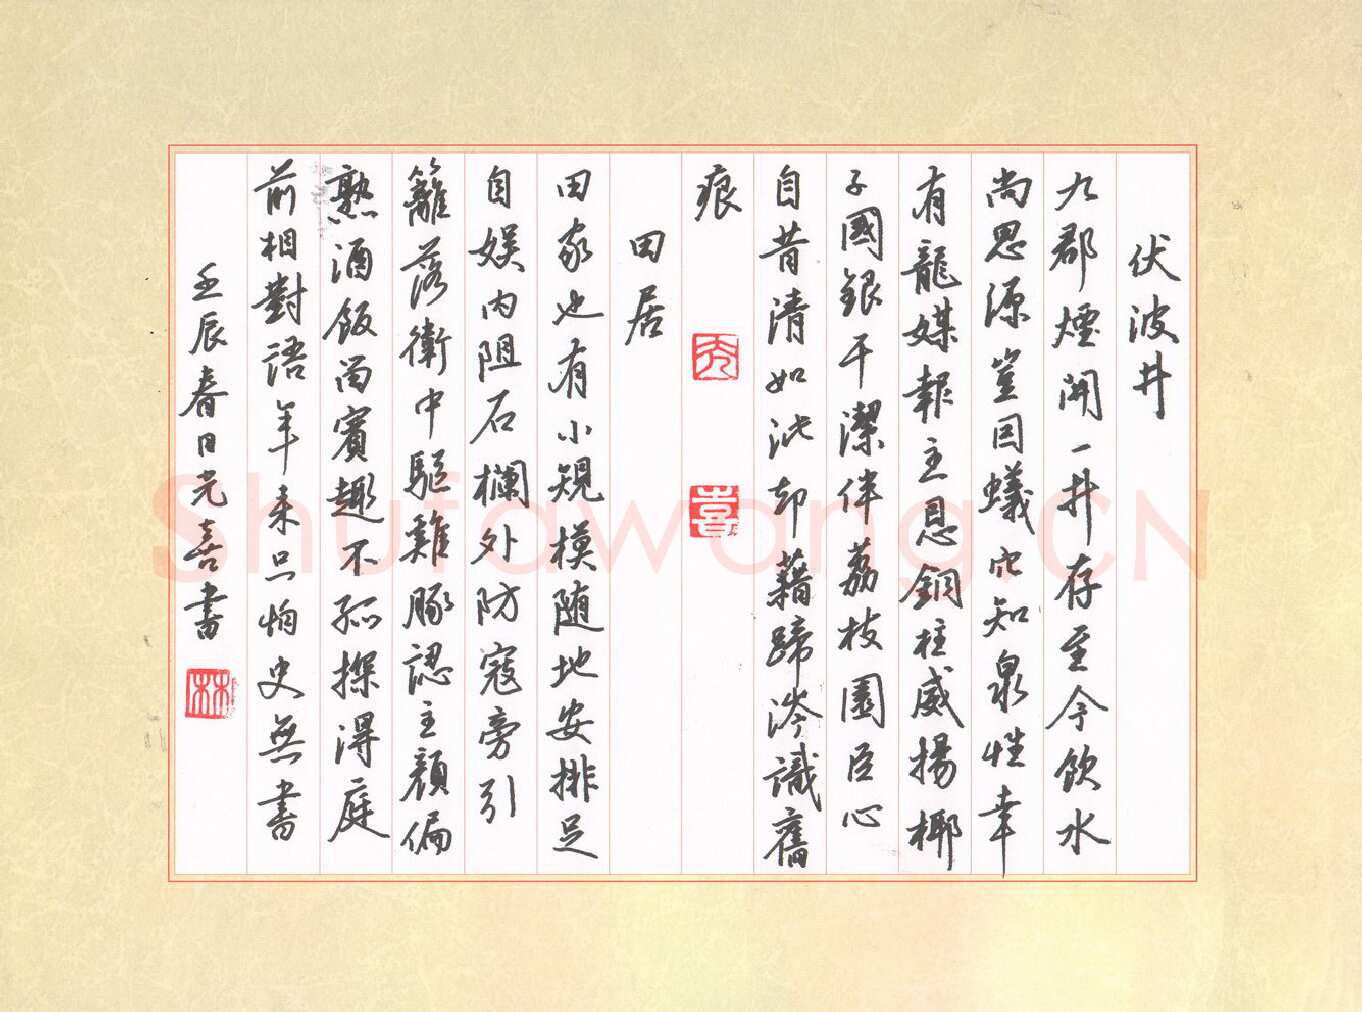 伏波井
九郡煙開一井存至今飲水
尚思源豈因蟻穴知泉性幸
有龍媒報主恩銅柱威揚椰
子國銀干潔伴荔枝園臣心
自昔清如此却藉蹄涔識舊
痕
田居
田家也有小規模随地安排足
自娱内阻石欄外防寇旁引
籬落衛中驅雞豚認主顔偏
熟酒飯留賓趣不孤探得庭
前相對語年来只怕吏無書
壬辰春日光喜書
光
喜
林
Shufawang.CN